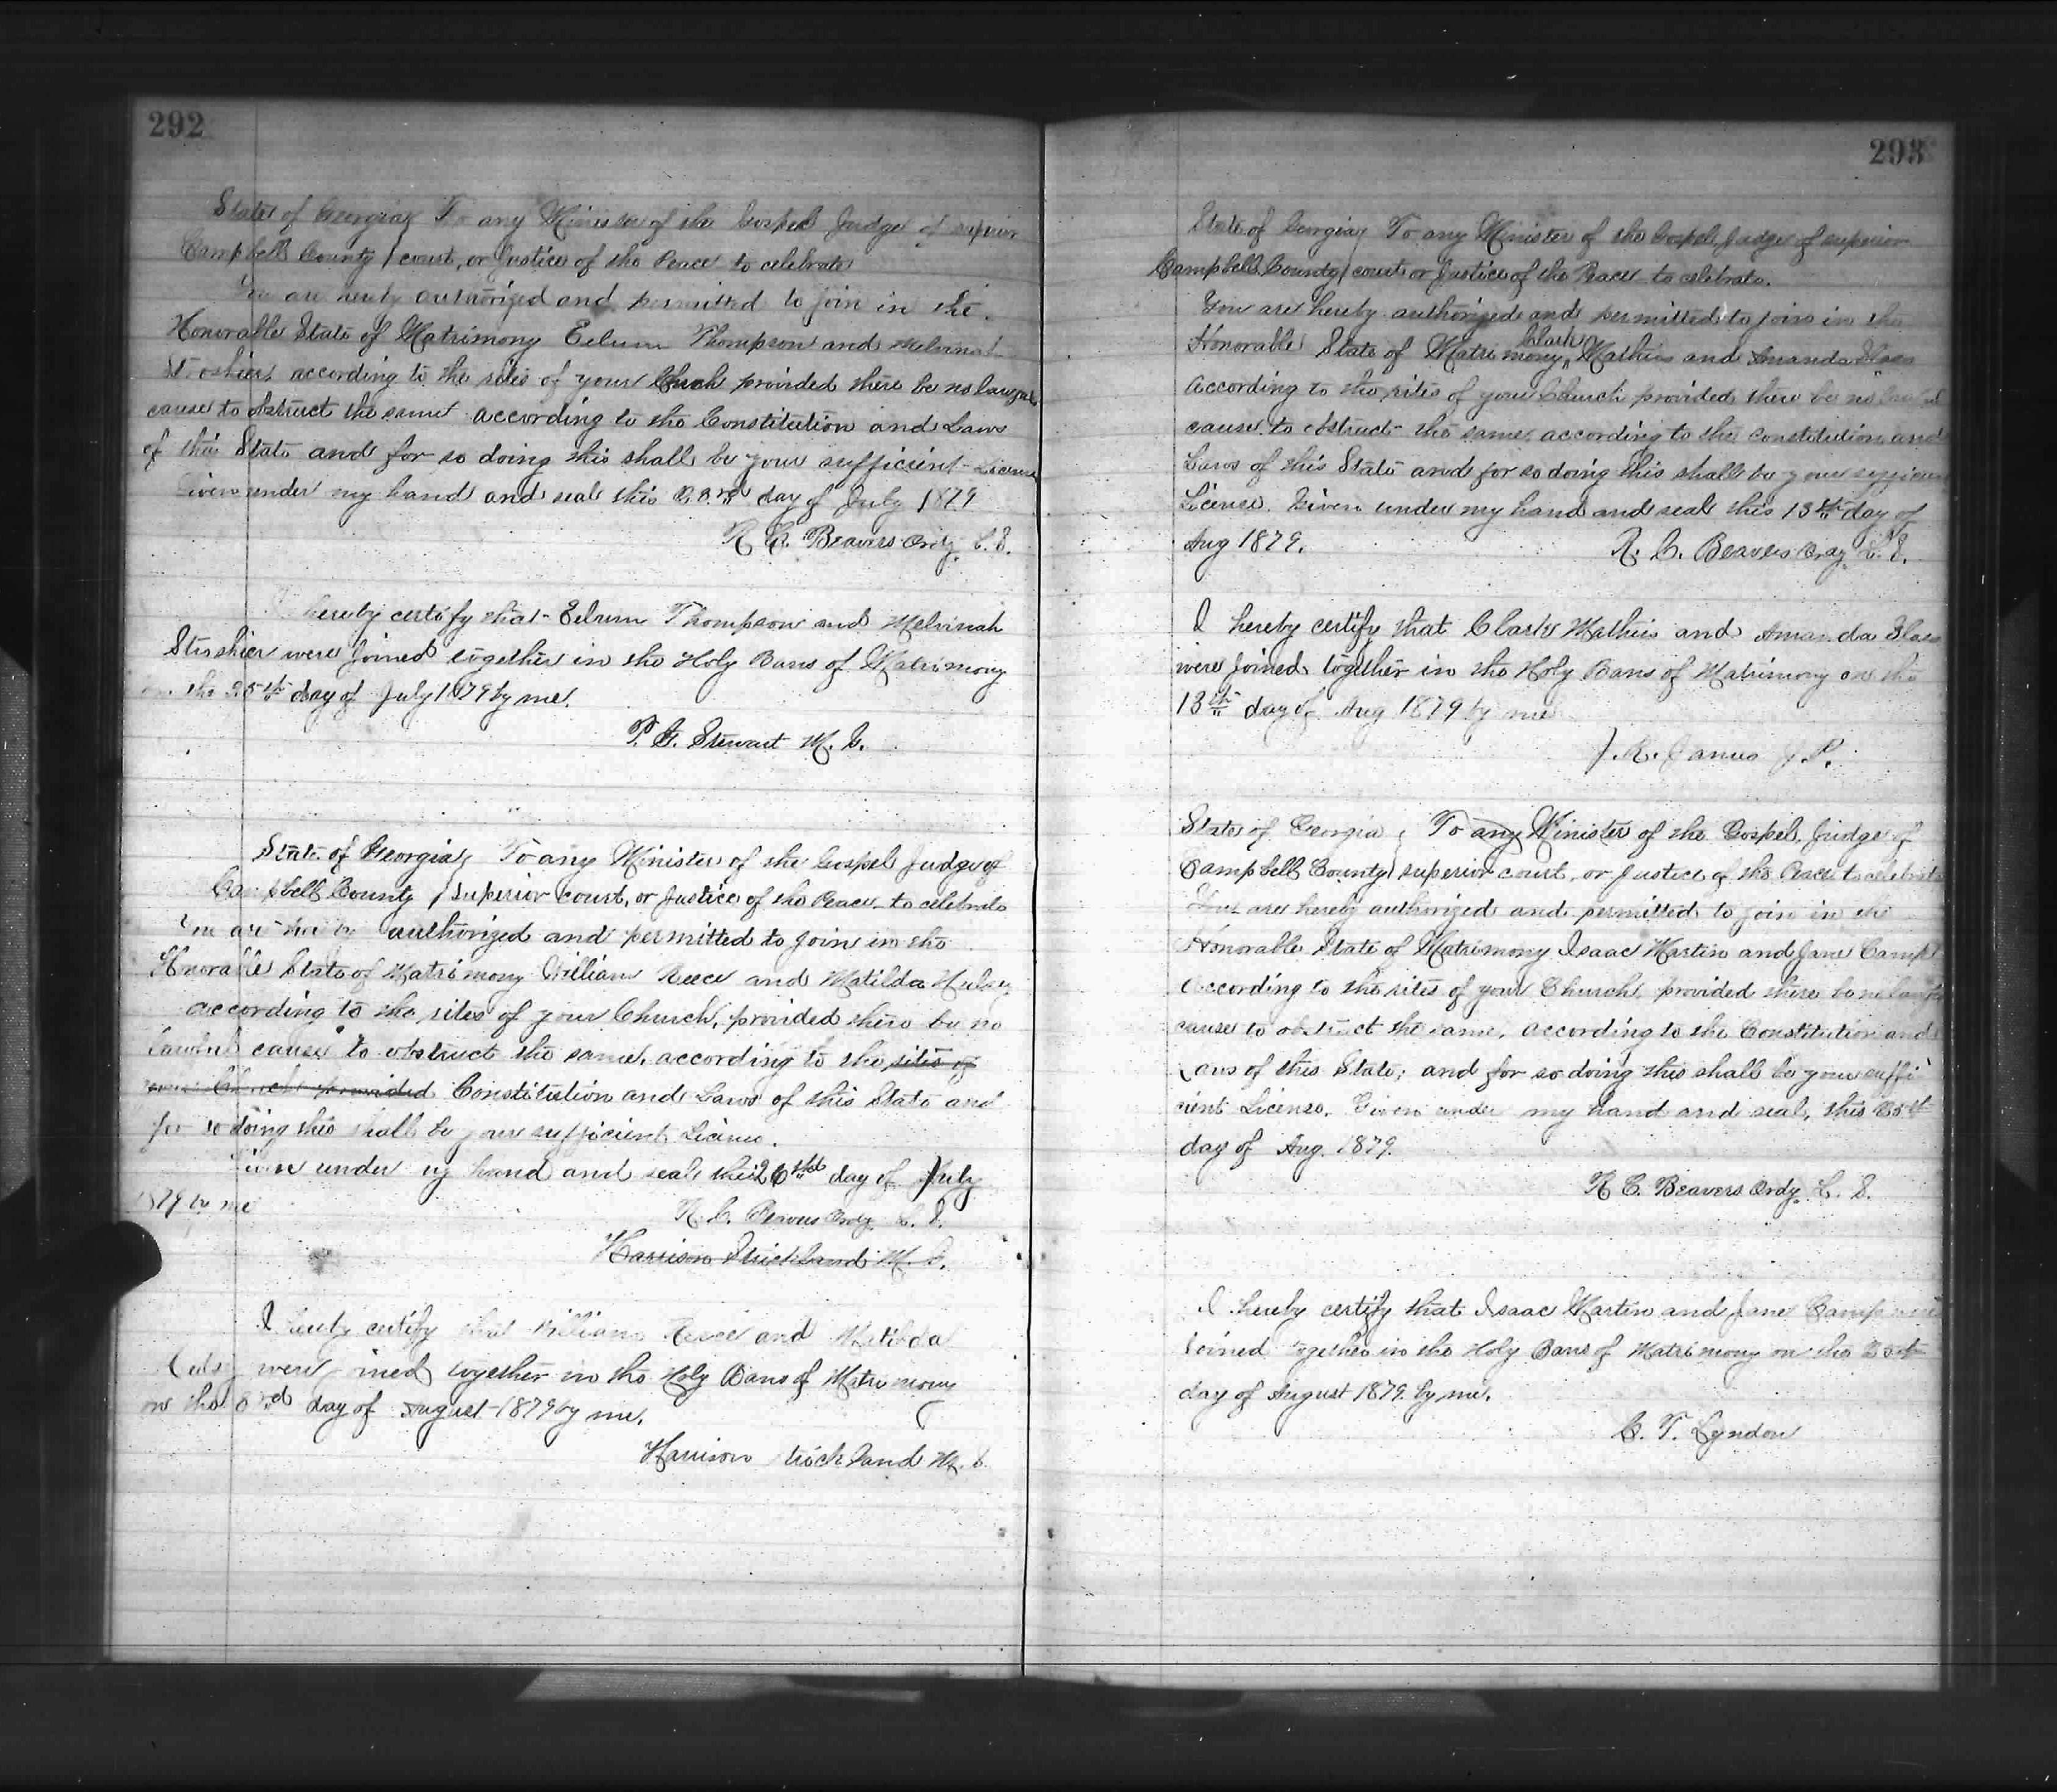 292
State of Georgia } To any Minister of the Gospel Judge of superior
Campbell County } court, or Justice of the Peace to celebrate
You are hereby authorized and permitted to join in the
Honorable State of Matrimony Thompson and Melvinah
according to the rites of your Church provided there be no lawful
cause to obstruct the same according to the Constitution and Laws
of this State and for so doing this shall be your sufficient License
Given under my hand and seal this day of July 1879
R. C. Beavers Ordy L. S.
hereby certify that Thompson and Melvinah
were joined together in the Holy Bans of Matrimony
on the 25th day of July 1879 by me.
Stewart M. G.
State of Georgia } To any Minister of the Gospel Judge of
Campbell County } superior court, or Justice of the Peace to celebrate
You are authorized and permitted to join in the
Honorable State of Matrimony William Reece and Matilda
according to the rites of your Church, provided there be no
lawful cause to obstruct the same, according to the rites of
your Church provided Constitution and Laws of this State and
for so doing this shall be your sufficient License.
Given under my hand and seal this 26th day of July
1879 by me
R. C. Beavers Ordy L. S.
Harrison Strickland M. G.
I hereby certify that William Reece and Matilda
were joined together in the Holy Bans of Matrimony
on the 3rd day of August 1879 by me.
Harrison Strickland M. G.
293
State of Georgia } To any Minister of the Gospel, Judge of superior
Campbell County } court or Justice of the Peace to celebrate.
You are hereby authorized and permitted to join in the
Clark
Honorable State of Matrimony Mathis and Amanda
according to the rites of your Church provided there be no lawful
cause to obstruct the same, according to the constitution and
Laws of this State and for so doing this shall be your sufficient
License. Given under my hand and seal this 13th day of
Aug 1879. R. C. Beavers Ordy L. S.
I hereby certify that Clark Mathis and Amanda
were joined together in the Holy Bans of Matrimony on the
13th day of Aug 1879 by me
J. R. J. P.
State of Georgia } To any Minister of the Gospel, Judge of
Campbell County } superior court, or Justice of the Peace to celebrate
You are hereby authorized and permitted to join in the
Honorable State of Matrimony Isaac Martin and Jane Camp
According to the rites of your Church, provided there be no lawful
cause to obstruct the same, according to the Constitution and
Laws of this State; and for so doing this shall be your suffi
cient License. Given under my hand and seal, this
day of Aug. 1879.
R. C. Beavers Ordy. L. S.
I hereby certify that Isaac Martin and Jane Camp were
Joined together in the Holy Bans of Matrimony on the
day of August 1879 by me.
C. T. Lyndon